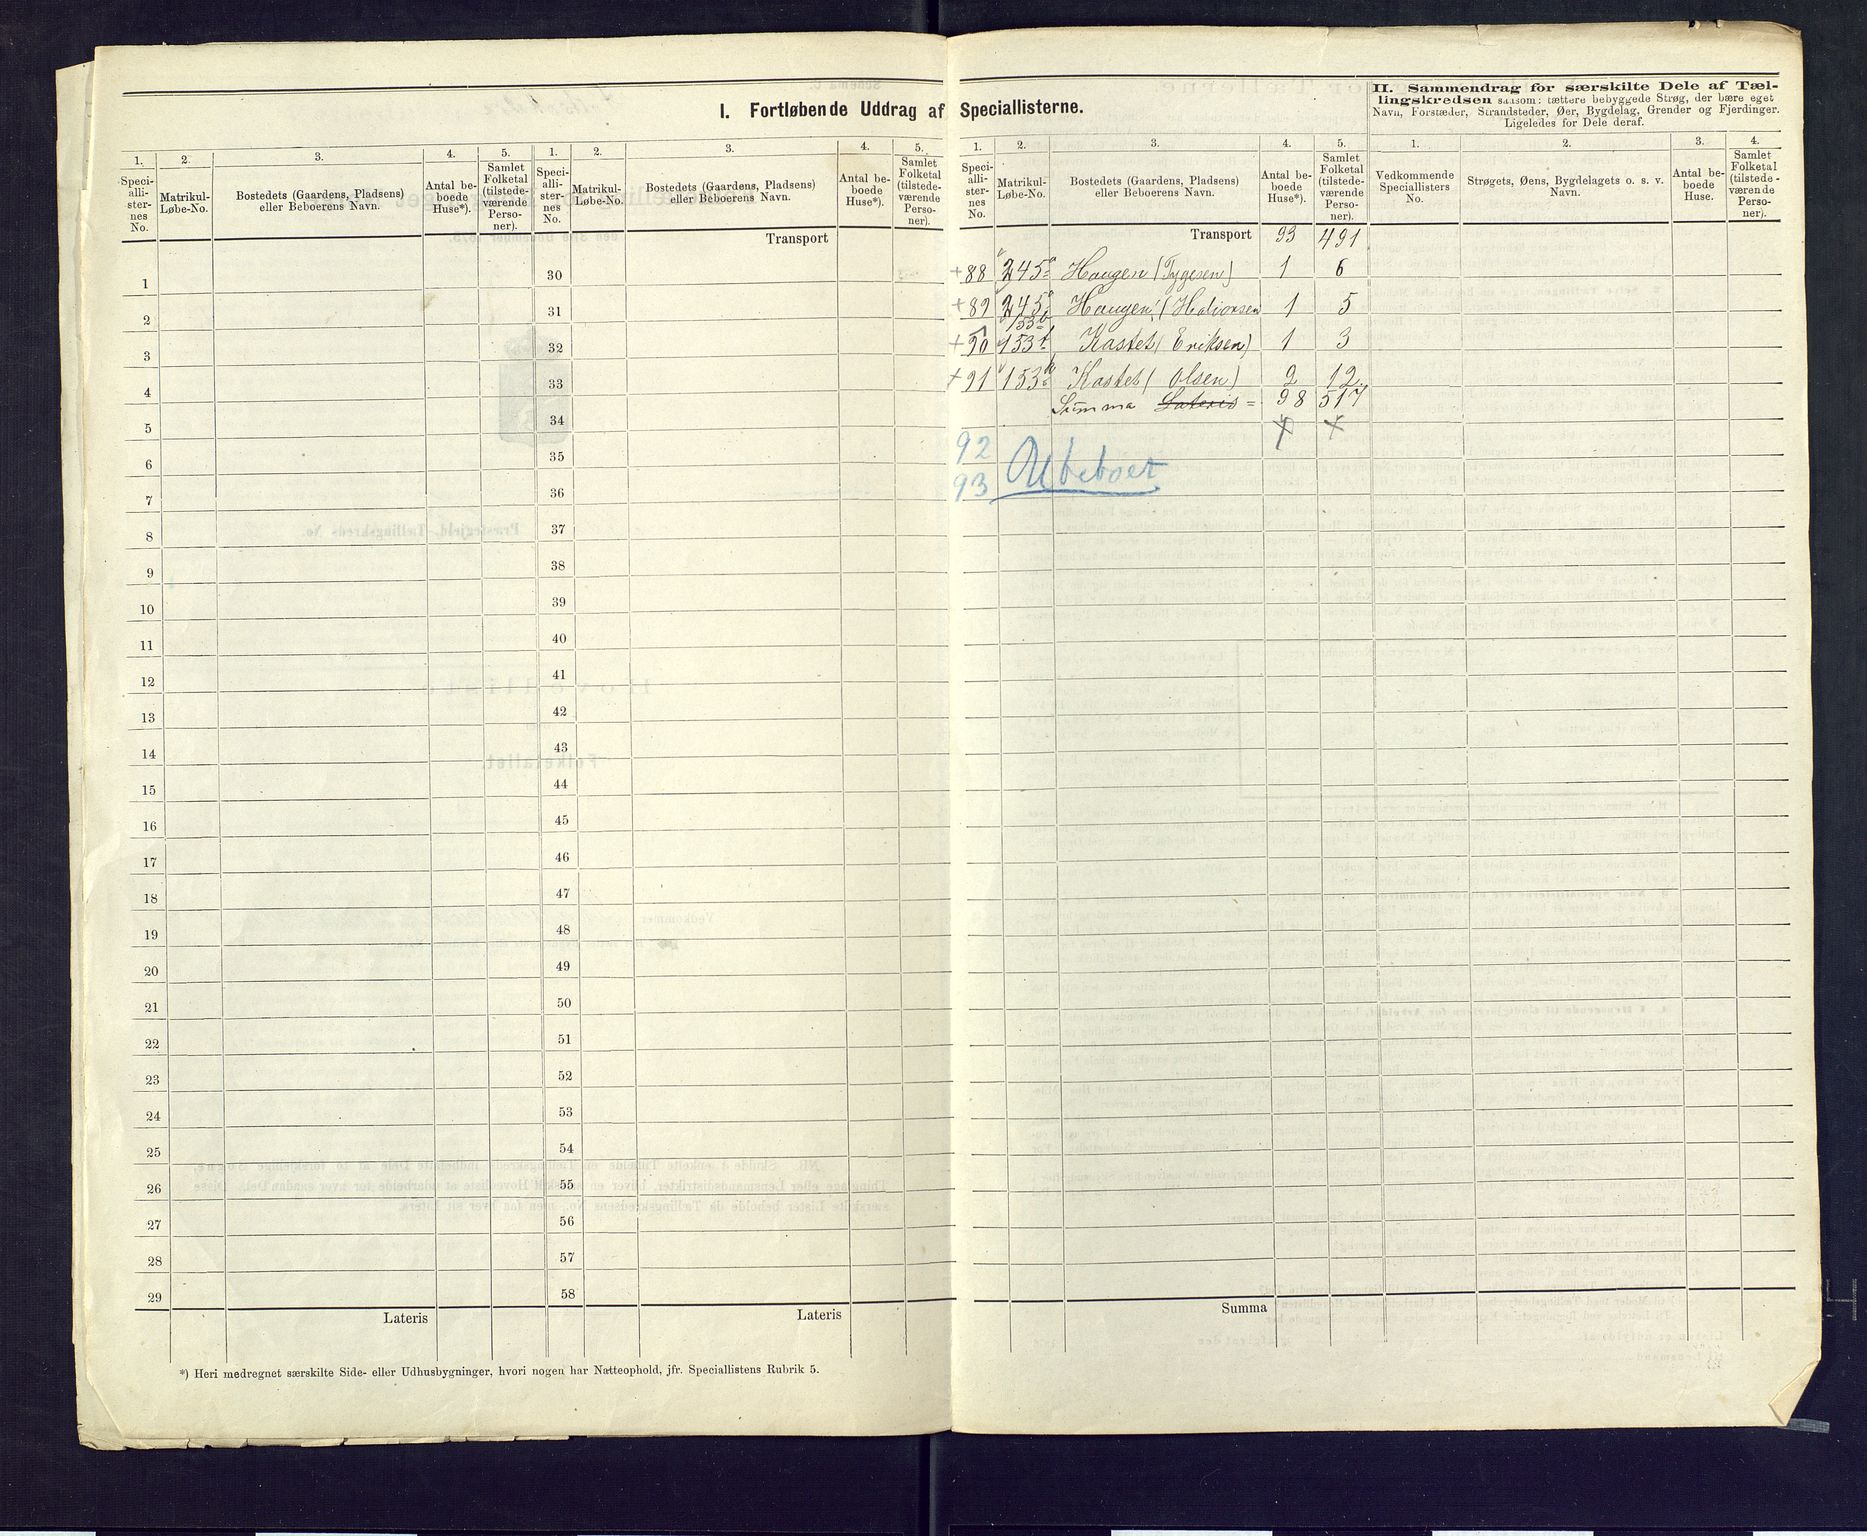 I. Fortløbende Uddrag af Speciallisterne.
II. Sammendrag for særskilte Dele af Tæl-
lingskredsen saasom: tættere bebyggede Strøg, der bære eget
Navn, Forstæder, Strandsteder, Øer, Bygdelag, Grender og Fjerdinger.
Ligeledes for Dele deraf.
1. 2. 3. 4. 5. 1. 2. 3. 4. 5. 1. 2. 3. 4. 5. 1. 2. 3. 4.
Speci-
alli-
ster-
nes
No.
Matrikul-
Løbe-No.
Bostedets (Gaardens, Pladsens)
eller Beboerens Navn.
Antal be-
boede
Huse*).
Samlet
Folketal
(tilstede-
værende
Perso-
ner).
Speci-
alli-
ster-
nes
No.
Matrikul-
Løbe-No.
Bostedets (Gaardens, Pladsens)
eller Beboerens Navn.
Antal be-
boede
Huse*).
Samlet
Folketal
(tilstede-
værende
Perso-
ner).
Speci-
alli-
ster-
nes
No.
Matrikul-
Løbe-No.
Bostedets (Gaardens, Pladsens)
eller Beboerens Navn.
Antal be-
boede
Huse*).
Samlet
Folketal
(tilstede-
værende
Perso-
ner).
Vedkommende
Speciallisters
No.
Strøgets, Øens, Bygdelagets o. s. v.
Navn.
Antal be-
boede
Huse.
Samlet
Folketal
(tilstede-
værende
Perso-
ner).
Transport
1 30
2 31
3 32
4 33
5 34
6 35
7 36
8 37
9 38
10 39
11 40
12 41
13 42
14 43
15 44
16 45
17 46
18 47
19 48
20 49
21 50
22 51
23 52
24 53
25 54
26 55
27 56
28 57
29 58
Lateris Lateris
*) Heri medregnet særskilte Side- eller Udhusbygninger, hvori nogen har Natteophold, jfr. Speciallistens Rubrik 5.
Transport 93 491
+88 245a Haugen (Tygesen) 1 6
+89 245 Haugen (Halvorsen 1 5
153b
+90 153 Kastet (Eriksen) 1 3
+91 153 Kastet (Olsen) 2 12
Summa Lateris = 98 517
92
93 Ubeboet
Summa